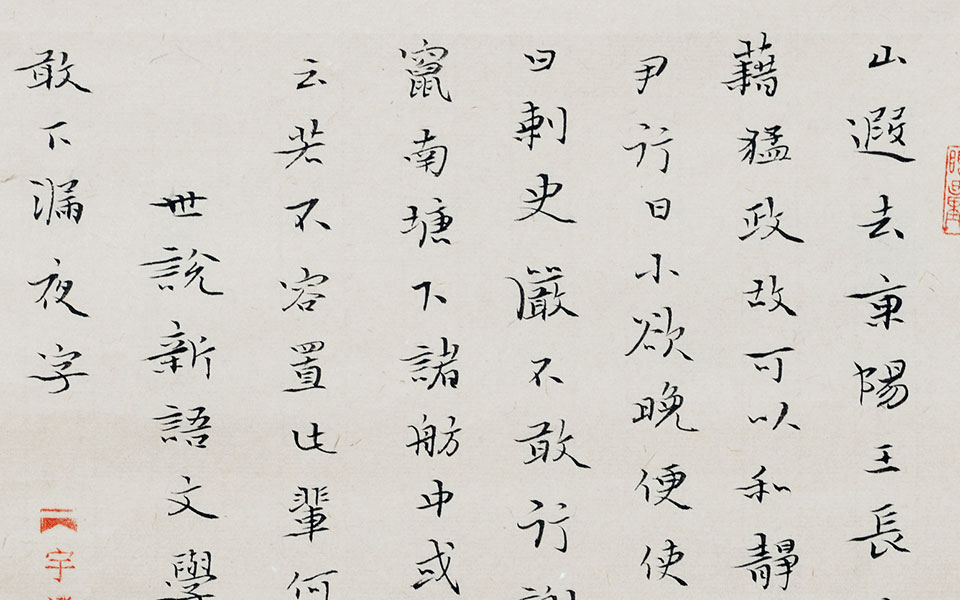 山遐去東陽王長
藉猛政故可以和靜
尹行日小欲晚便使
曰刺史嚴不敢行
竄南塘下諸舫中或
云若不容置此輩何
世說新語文學
敢下漏夜字
宇